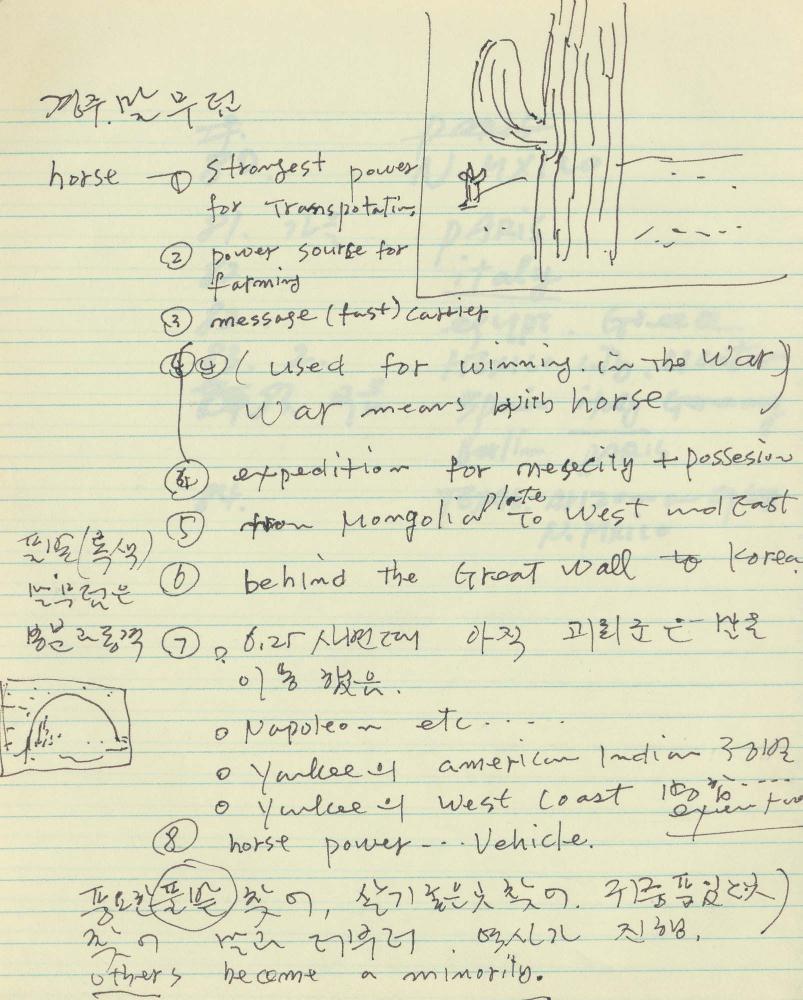 경주.말 무덤
horse ① strongest power
for Transpotation
② power source for
farming
③ message (fast) carrier
④ (used for winning. in The War)
War means with horse
expedition for nesecity + possesion
⑤ from Mongolia plate To West and East
⑥ behind the Great Wall to Korea
필말(흑색)
말무덤은
봉분과 동격
⑦ 6.25 사변때 아직 괴뢰군은 말을
이용 했은.
o Napoleon etc.....
o Yankee의 american Indian
o Yankee의 West Coast
⑧ horse power... Vehicle.
풍요한 풀밭 찾어, 살기좋은곳 찾어. 귀중품있는곳)
찾어 말과 더부러. 역사가 진행.
others become a minority.